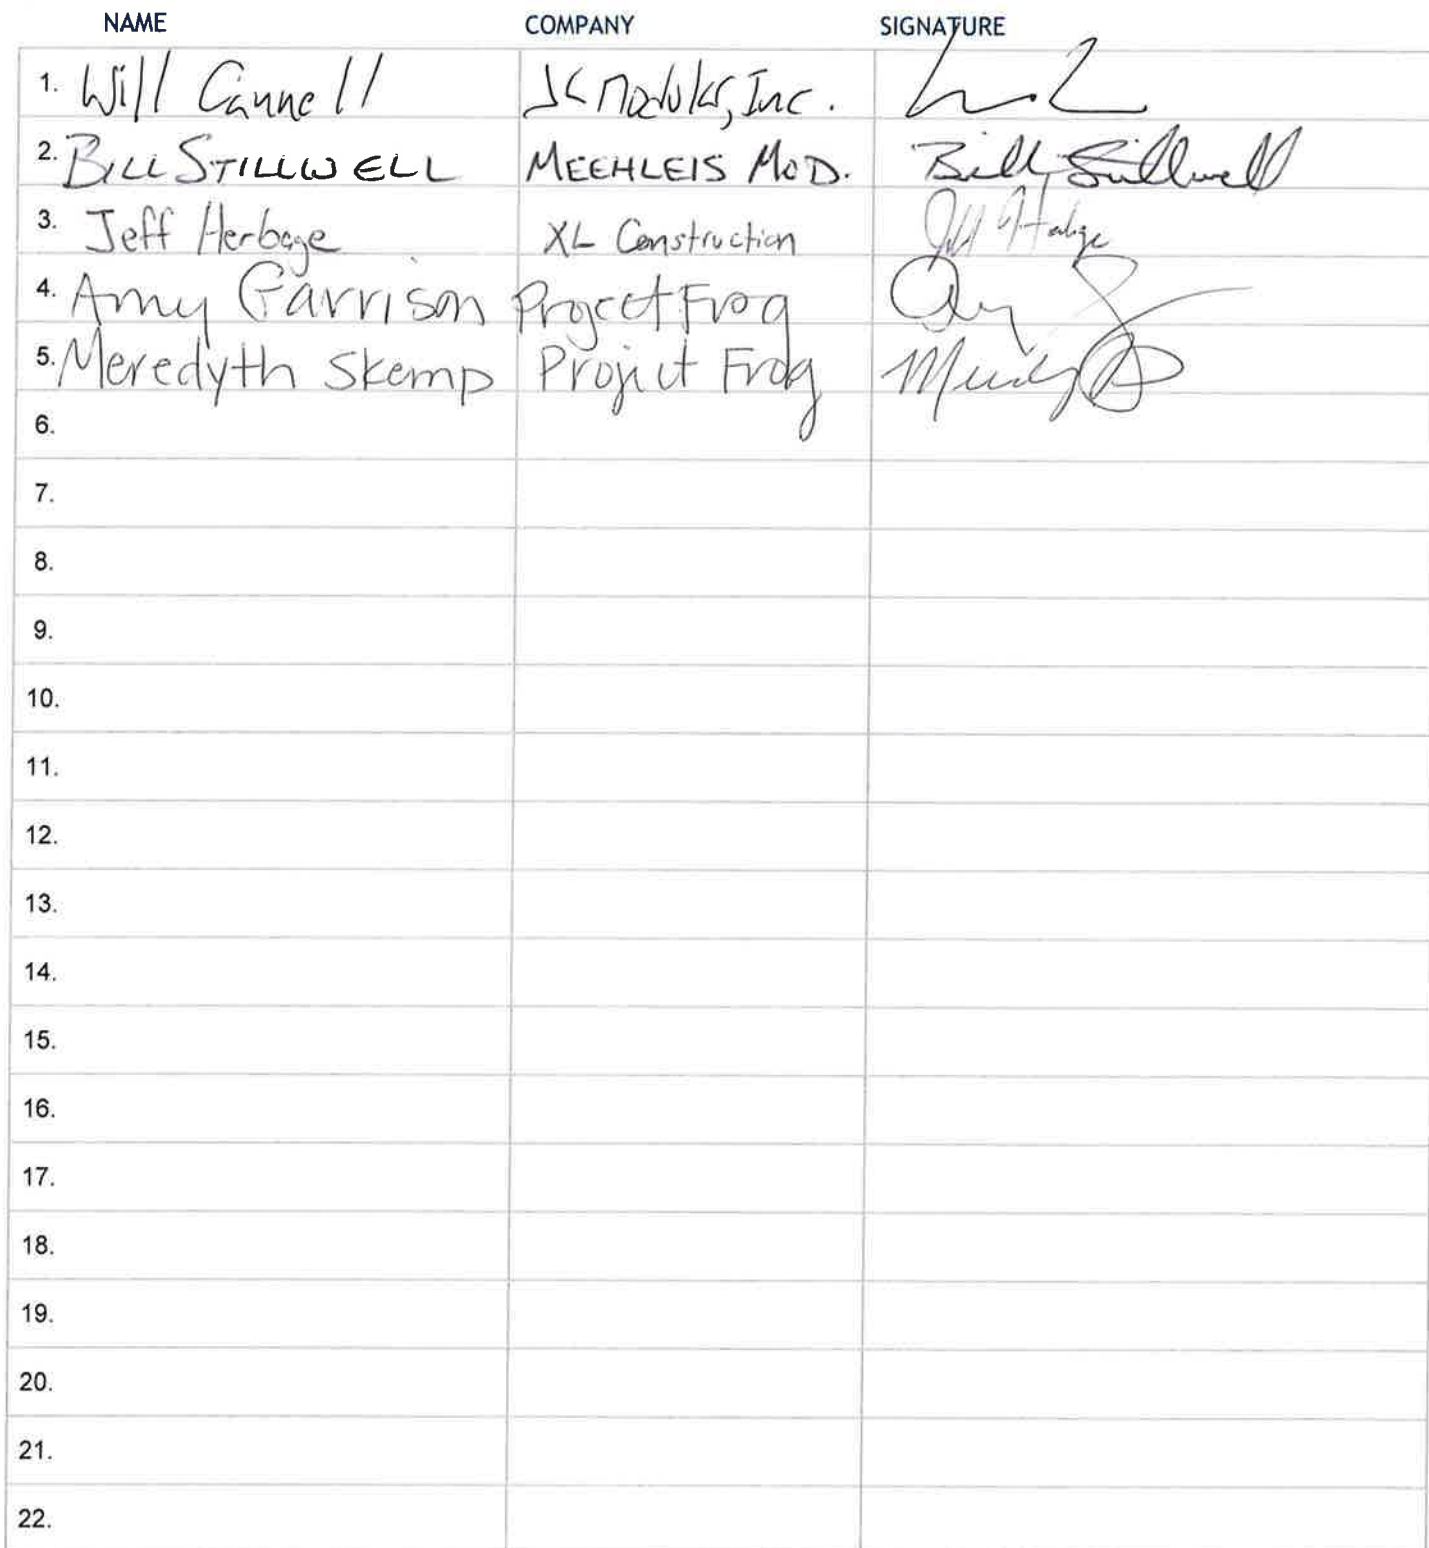 NAME COMPANY SIGNATURE
1. Will Cannell JC Modular, Inc.
2. BILL STILLWELL MEEHLEIS MOD. Bill Stillwell
3. Jeff Herbage XL Construction Jeff Herbage
4. Amy Garrison Project Frog
5. Meredyth Skemp Project Frog
6.
7.
8.
9.
10.
11.
12.
13.
14.
15.
16.
17.
18.
19.
20.
21.
22.